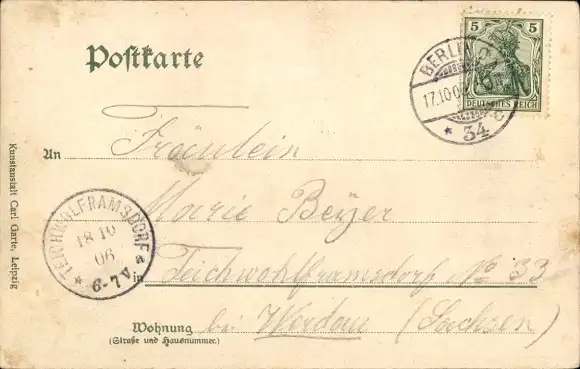 Postkarte
5 5
DEUTSCHES REICH
BERLIN
17.10.0
* 34
An Fräulein
Marie Beyer
in Teichwohlframsdorf No 33
bei Werdau (Sachsen)
Wohnung
(Straße und Hausnummer.)
TEICHWOLFRAMSDORF
18 10
06
6-7 N
Kunstanstalt Carl Garte, Leipzig